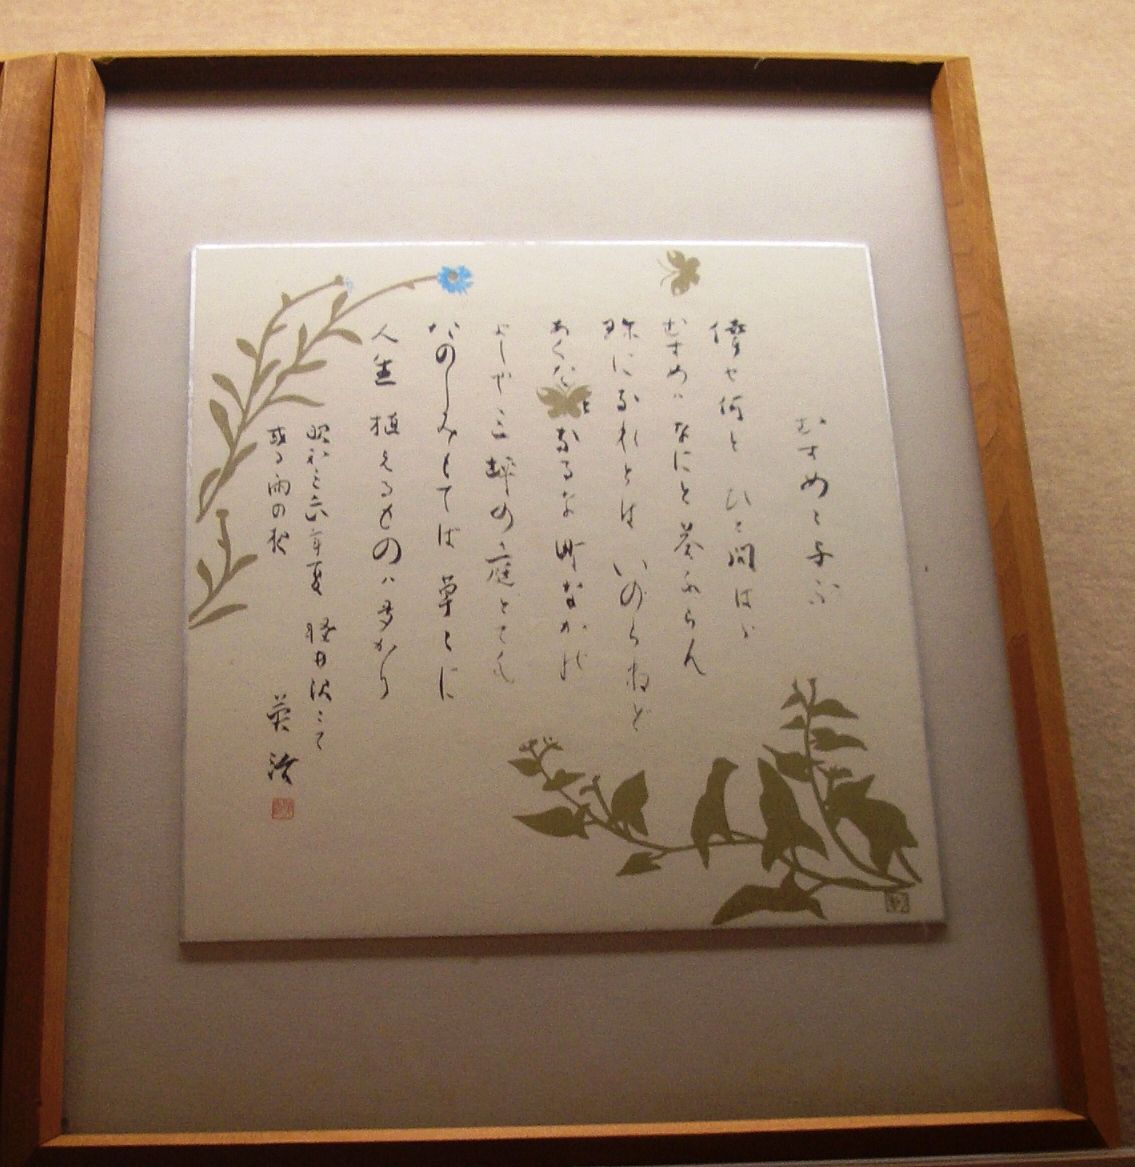 むすめに与ふ
倖せ何と ひと問はゞ
むすめハなにと答ふらん
珠になれとは いのらねど
あくたとなるな 町なかの
よしや三坪の庭とても
たのしみもてば 草々に
人生 植えるものハ多かり
昭和三六年夏 軽井沢ニて
或る雨の夜 英治